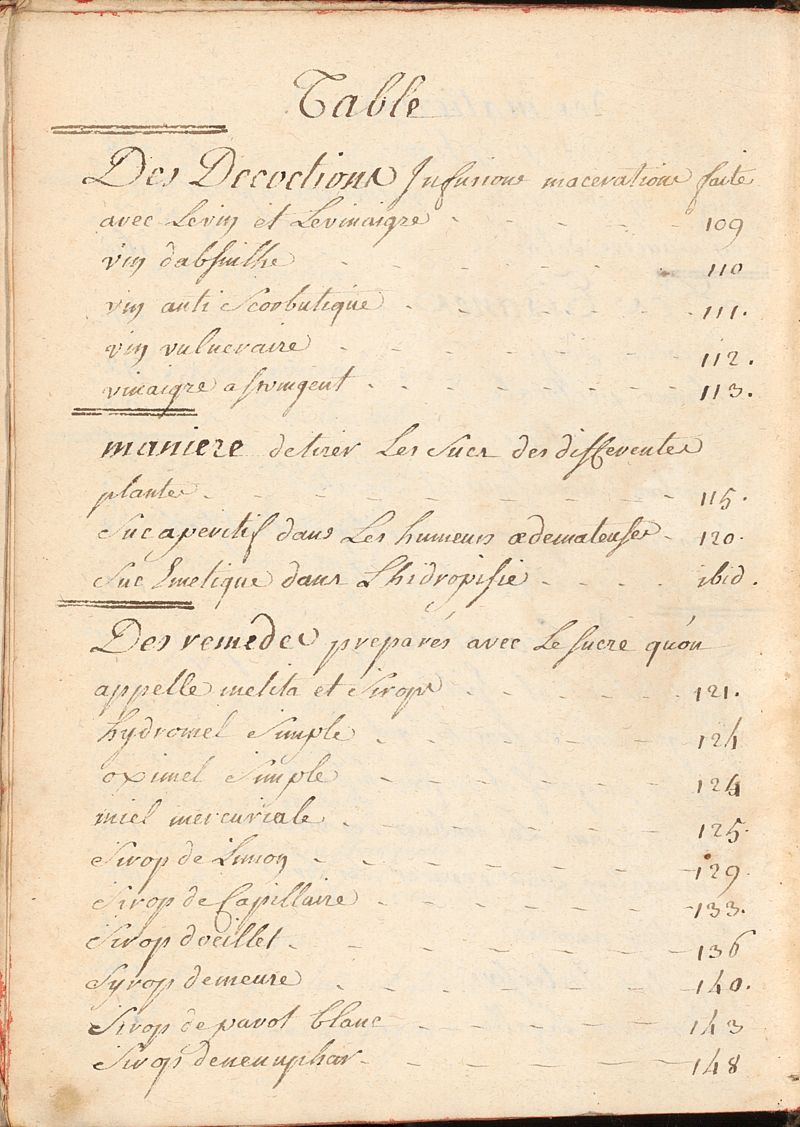 Table
Des Decoctions Infusions macerations faite
avec Levin et Levinaigre - - - - - 109
vin dabsinthe - - - - - - - 110
vin anti Scorbutique - - - - - - 111.
vin vulneraire - - - - - - - 112.
vinaigre astringent - - - - - - 113.
maniere detirer Les Sucs des differentes
plantes - - - - - - - - - 115.
Suc aperitif dans Les humeurs œdemateuses - 120.
Suc Emetique dans Lhidropisie - - - - ibid.
Des remedes preparés avec Le Sucre qu'on
appelle melita et Sirops - - - - - 121.
hydromel Simple - - - - - - 124
oximel Simple - - - - - - - 124
miel mercuriale - - - - - - - 125.
Sirop de Limon - - - - - - - 129.
Sirop de Capillaire - - - - - - 133.
Sirop doeillet - - - - - - - 136
Syrop demeure - - - - - - - 140.
Sirop de pavot blanc - - - - - - 143
Sirop denenuphar - - - - - - 148